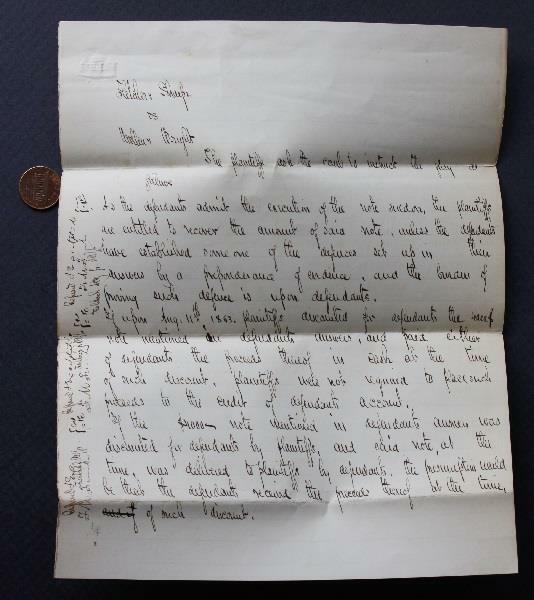 Fletcher & Sharpe
vs
William Wright
The plaintiffs ask the court to instruct the jury as
follows
As the defendants admit the execution of the note sued on, the plaintiffs
are entitled to recover the amount of said note, unless the defendants
have established some one of the defences set up in their
answers by a preponderance of evidence, and the burden of
proving such defence is upon defendants.
If upon Aug. 11th 1863. plaintiffs discounted for defendants the
note mentioned in defendants answer, and paid either
of defendants the proceeds thereof in cash at the time
of such discount, plaintiffs were not required to place such
proceeds to the credit of defendants account.
If the $4000 note mentioned in defendants answer was
discounted for defendants by plaintiffs, and said note, at the
time, was delivered to plaintiffs by defendants, the presumption would
be that the defendants received the proceeds thereof at the time,
of such discount.